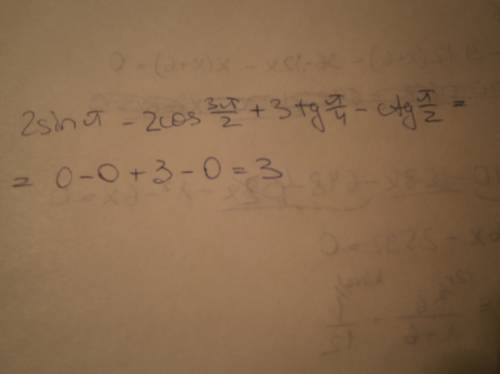 2sinπ - 2cos 3π/2 + 3tg π/4 - ctg π/2 =
= 0 - 0 + 3 - 0 = 3